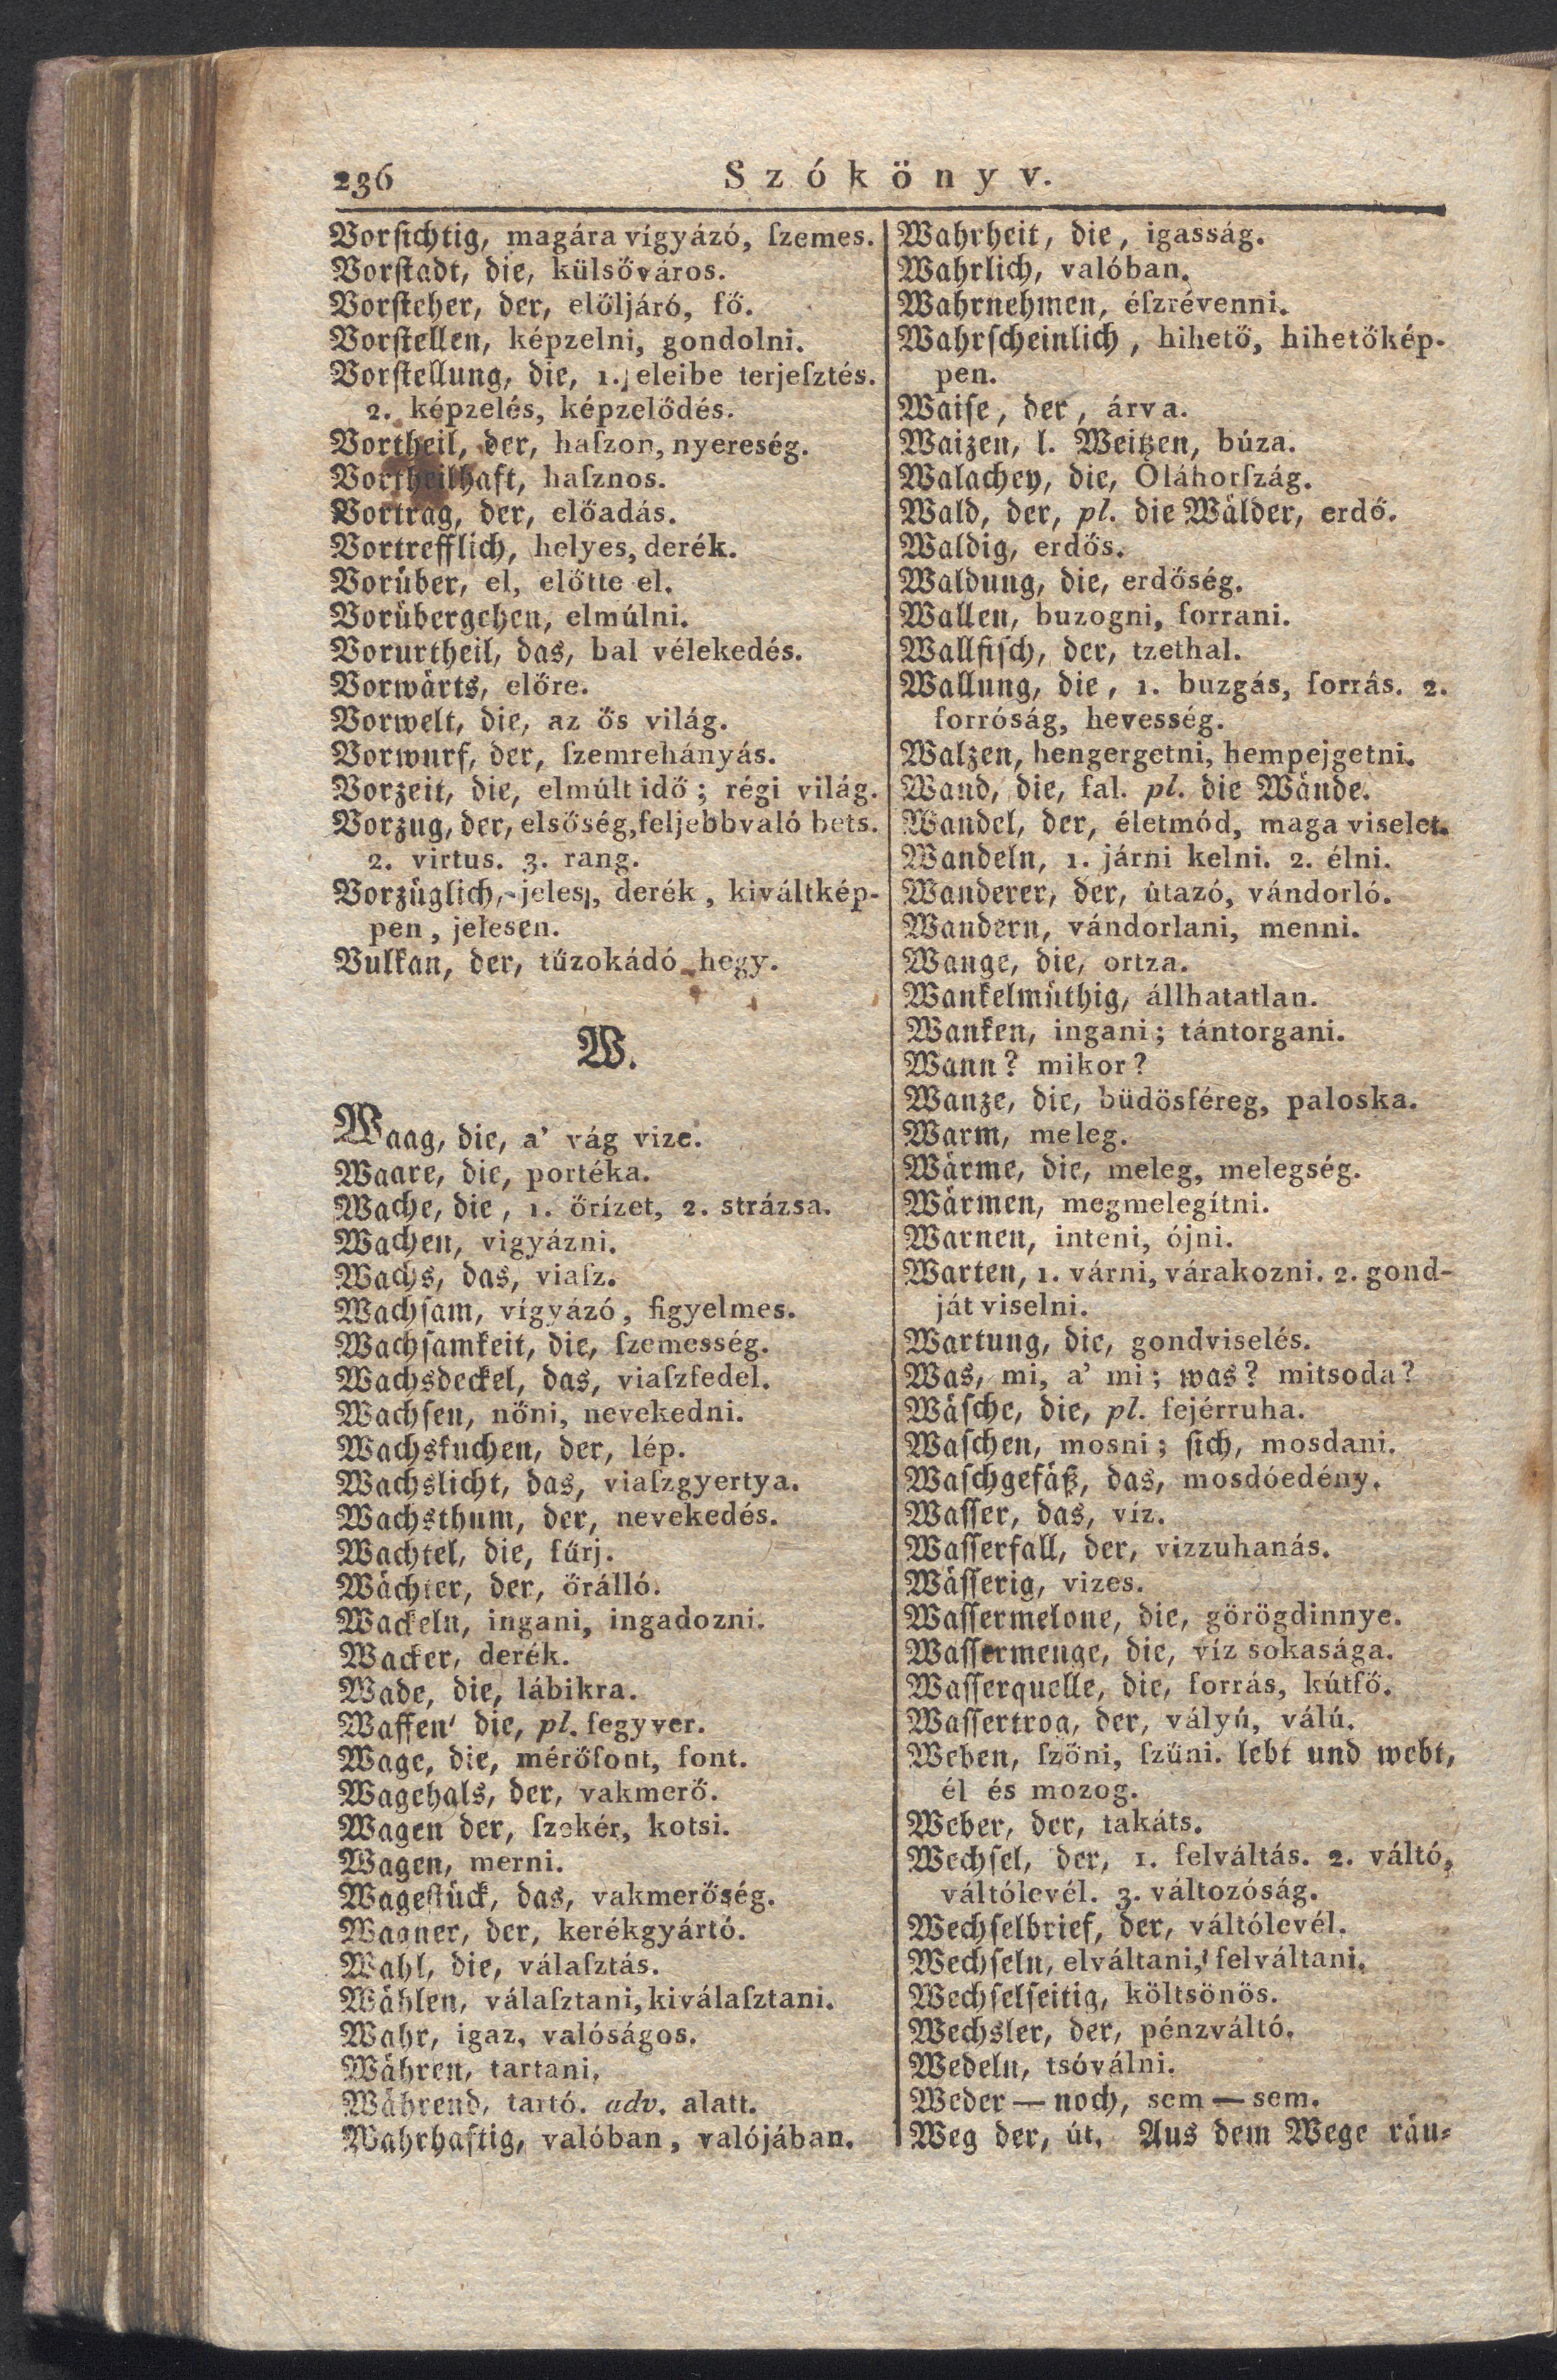 236
Szókönyv.
Vorſichtig, magára vígyázó, ſzemes.
Vorſtadt, die, külsőváros.
Vorſteher, der, előljáró, fő.
Vorſtellen, képzelni, gondolni.
Vorſtellung, die, 1. eleibe terjeſztés.
2. képzelés, képzelődés.
Vortheil, der, haſzon, nyereség.
Vortheilhaft, haſznos.
Vortrag, der, előadás.
Vortrefflich, helyes, derék.
Vorüber, el, előtte el.
Vorübergehen, elmúlni.
Vorurtheil, das, bal vélekedés.
Vorwärts, előre.
Vorwelt, die, az ős világ.
Vorwurf, der, ſzemrehányás.
Vorzeit, die, elmúlt idő; régi világ.
Vorzug, der, elsőség, feljebbvaló bets.
2. virtus. 3. rang.
Vorzüglich, jeles, derék, kiváltkép-
pen, jelesen.
Vulkan, der, tűzokádó hegy.
W.
Waag, die, a' vág vize.
Waare, die, portéka.
Wache, die, 1. őrízet, 2. strázsa.
Wachen, vigyázni.
Wachs, das, viaſz.
Wachſam, vígyázó, figyelmes.
Wachſamkeit, die, ſzemesség.
Wachsdeckel, das, viaſzfedel.
Wachſen, nőni, nevekedni.
Wachskuchen, der, lép.
Wachslicht, das, viaſzgyertya.
Wachsthum, der, nevekedés.
Wachtel, die, fűrj.
Wächter, der, őrálló.
Wackeln, ingani, ingadozni.
Wacker, derék.
Wade, die, lábikra.
Waffen' die, pl. fegyver.
Wage, die, mérőfont, font.
Wagehals, der, vakmerő.
Wagen der, ſzekér, kotsi.
Wagen, merni.
Wageſtück, das, vakmerőség.
Wagner, der, kerékgyártó.
Wahl, die, válaſztás.
Wählen, válaſztani, kiválaſztani.
Wahr, igaz, valóságos.
Währen, tartani,
Während, tartó. adv. alatt.
Wahrhaftig, valóban, valójában.
Wahrheit, die, igasság.
Wahrlich, valóban.
Wahrnehmen, éſzrévenni.
Wahrſcheinlich, hihető, hihetőkép-
pen.
Waiſe, der, árva.
Waizen, l. Weitzen, búza.
Walachey, die, Óláhorſzág.
Wald, der, pl. die Wälder, erdő.
Waldig, erdős.
Waldung, die, erdőség.
Wallen, buzogni, forrani.
Wallfiſch, der, tzethal.
Wallung, die, 1. buzgás, forrás. 2.
forróság, hevesség.
Walzen, hengergetni, hempejgetni.
Wand, die, fal. pl. die Wände.
Wandel, der, életmód, maga viselet.
Wandeln, 1. járni kelni. 2. élni.
Wanderer, der, útazó, vándorló.
Wandern, vándorlani, menni.
Wange, die, ortza.
Wankelmüthig, állhatatlan.
Wanken, ingani; tántorgani.
Wann? mikor?
Wanze, die, büdösféreg, paloska.
Warm, meleg.
Wärme, die, meleg, melegség.
Wärmen, megmelegítni.
Warnen, inteni, ójni.
Warten, 1. várni, várakozni. 2. gond-
ját viselni.
Wartung, die, gondviselés.
Was, mi, a' mi; was? mitsoda?
Wäſche, die, pl. fejérruha.
Waſchen, mosni; ſich, mosdani.
Waſchgefäß, das, mosdóedény.
Waſſer, das, víz.
Waſſerfall, der, vizzuhanás.
Wäſſerig, vizes.
Waſſermelone, die, görögdinnye.
Waſſermenge, die, víz sokasága.
Waſſerquelle, die, forrás, kútfő.
Waſſertrog, der, vályú, válú.
Weben, ſzőni, ſzűni. lebt und webt,
él és mozog.
Weber, der, takáts.
Wechſel, der, 1. felváltás. 2. váltó,
váltólevél. 3. változóság.
Wechſelbrief, der, váltólevél.
Wechſeln, elváltani, felváltani.
Wechſelſeitig, költsönös.
Wechsler, der, pénzváltó.
Wedeln, tsóválni.
Weder — noch, sem — sem.
Weg der, út. Aus dem Wege räu-